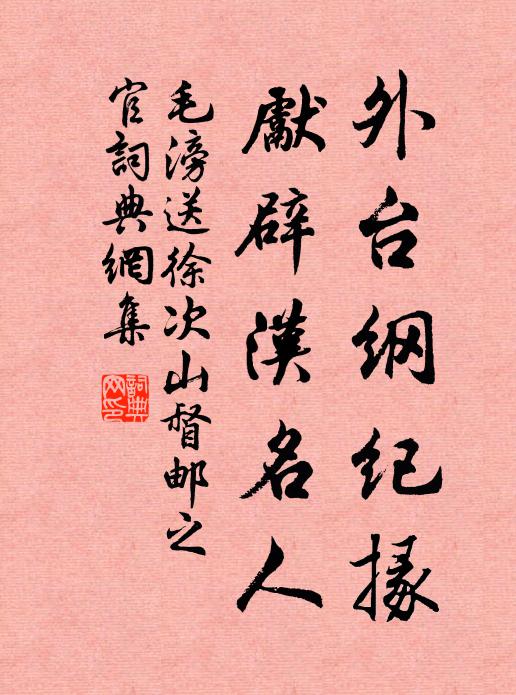 外台綱紀掾
獻辟漢名人
毛滂送徐次山督邮之
官詞典網集
詞典網印